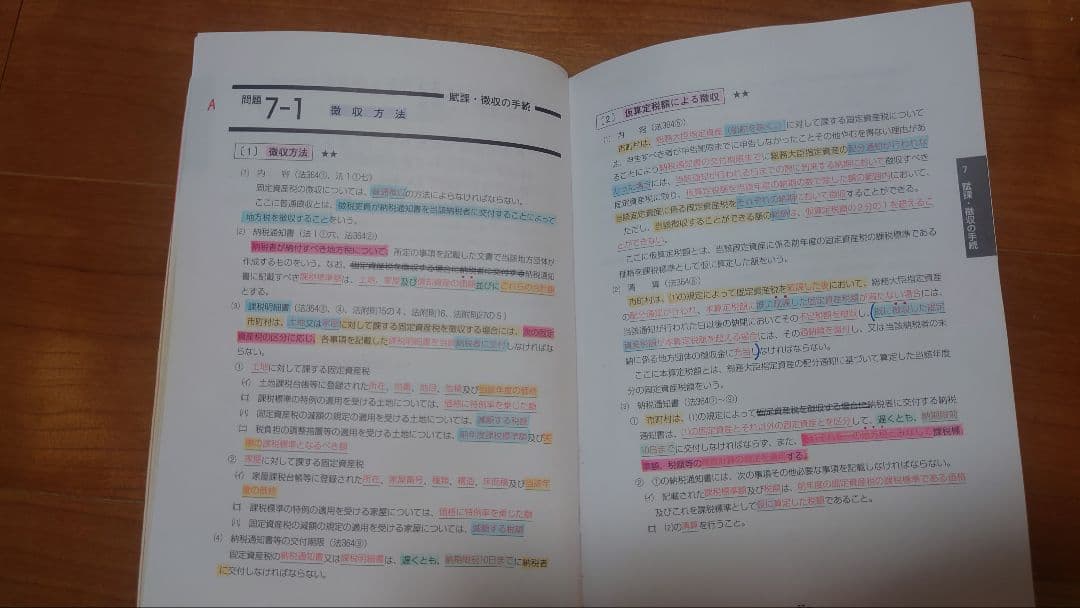 A
問題 7-1 徴収方法
賦課・徴収の手続
〔1〕 徴収方法 ★★
(1) 内 容(法364①、法1①七)
固定資産税の徴収については、普通徴収の方法によらなければならない。
ここに普通徴収とは、徴税吏員が納税通知書を当該納税者に交付することによって
地方税を徴収することをいう。
(2) 納税通知書(法1①六、法364②)
納税者が納付すべき地方税について、所定の事項を記載した文書で当該地方団体が
作成するものをいう。なお、固定資産税を徴収する場合に納税者に交付する納税通知
書に記載すべき課税標準額は、土地、家屋及び償却資産の価額並びにこれらの合計額
とする。
(3) 課税明細書(法364③、④、法附則15の4、法附則16、法附則27の5)
市町村は、土地又は家屋に対して課する固定資産税を徴収する場合には、次の固定
資産税の区分に応じ、各事項を記載した課税明細書を当該納税者に交付しなければな
らない。
① 土地に対して課する固定資産税
(イ) 土地課税台帳等に登録された所在、地番、地目、地積及び当該年度の価格
(ロ) 課税標準の特例の適用を受ける土地については、価格に特例率を乗じた額
(ハ) 固定資産税の減額の規定の適用を受ける土地については、減額する税額
(ニ) 税負担の調整措置等の適用を受ける土地については、前年度課税標準額及び
の課税標準となるべき額
② 家屋に対して課する固定資産税
(イ) 家屋課税台帳等に登録された所在、家屋番号、種類、構造、床面積及び当該年
度の価格
(ロ) 課税標準の特例の適用を受ける家屋については、価格に特例率を乗じた額
(ハ) 固定資産税の減額の規定の適用を受ける家屋については、減額する税額
(4) 納税通知書等の交付期限(法364⑨)
固定資産税の納税通知書又は課税明細書は、遅くとも、納期限前10日までに納税者
に交付しなければならない。
〔2〕 仮算定税額による徴収 ★★
(1) 内 容(法364⑤)
市町村は、総務大臣指定資産に対して課する固定資産税について
は、申告すべき者が申告期限までに申告しなかったことその他やむを得ない理由があ
ることにより納税通知書の交付期限までに総務大臣指定資産の配分通知が行われな
かった場合には、当該通知が行われる日までの間に到来する納期において徴収すべき
固定資産税に限り、仮算定税額を当該年度の納期の数で除した額の範囲内において、
当該固定資産に係る固定資産税をそれぞれの納期において徴収することができる。
ただし、当該徴収することができる額の総額は、仮算定税額の2分の1を超えるこ
とができない。
ここに仮算定税額とは、当該固定資産に係る前年度の固定資産税の課税標準である
価格を課税標準として仮に算定した額をいう。
(2) 清 算(法364⑥)
市町村は、(1)の規定によって固定資産税を賦課した後において、総務大臣指定資産
の配分通知が行われ、本算定税額に既に賦課した固定資産税額が満たない場合には、
当該通知が行われた日以後の納期においてその不足税額を徴収し、既に徴収した固定
資産税額が本算定税額を超える場合には、その過納額を還付し、又は当該納税者の未
納に係る地方団体の徴収金に充当しなければならない。
ここに本算定税額とは、総務大臣指定資産の配分通知に基づいて算定した当該年度
分の固定資産税額をいう。
(3) 納税通知書(法364⑦~⑨)
① 市町村は、(1)の規定によって固定資産税を徴収する場合に納税者に交付する納税
通知書は、(1)の固定資産とそれ以外の固定資産とを区分して、遅くとも、納期限前
10日までに交付しなければならず、また、それぞれを一の地方税とみなして課税標
準額、税額等の端数計算の規定を適用する。
② ①の納税通知書には、次の事項その他必要な事項を記載しなければならない。
(イ) 記載された課税標準額及び税額は、前年度の固定資産税の課税標準である価格
及びこれを課税標準として仮に算定した税額であること。
(ロ) (2)の清算を行うこと。
7 賦課・徴収の手続